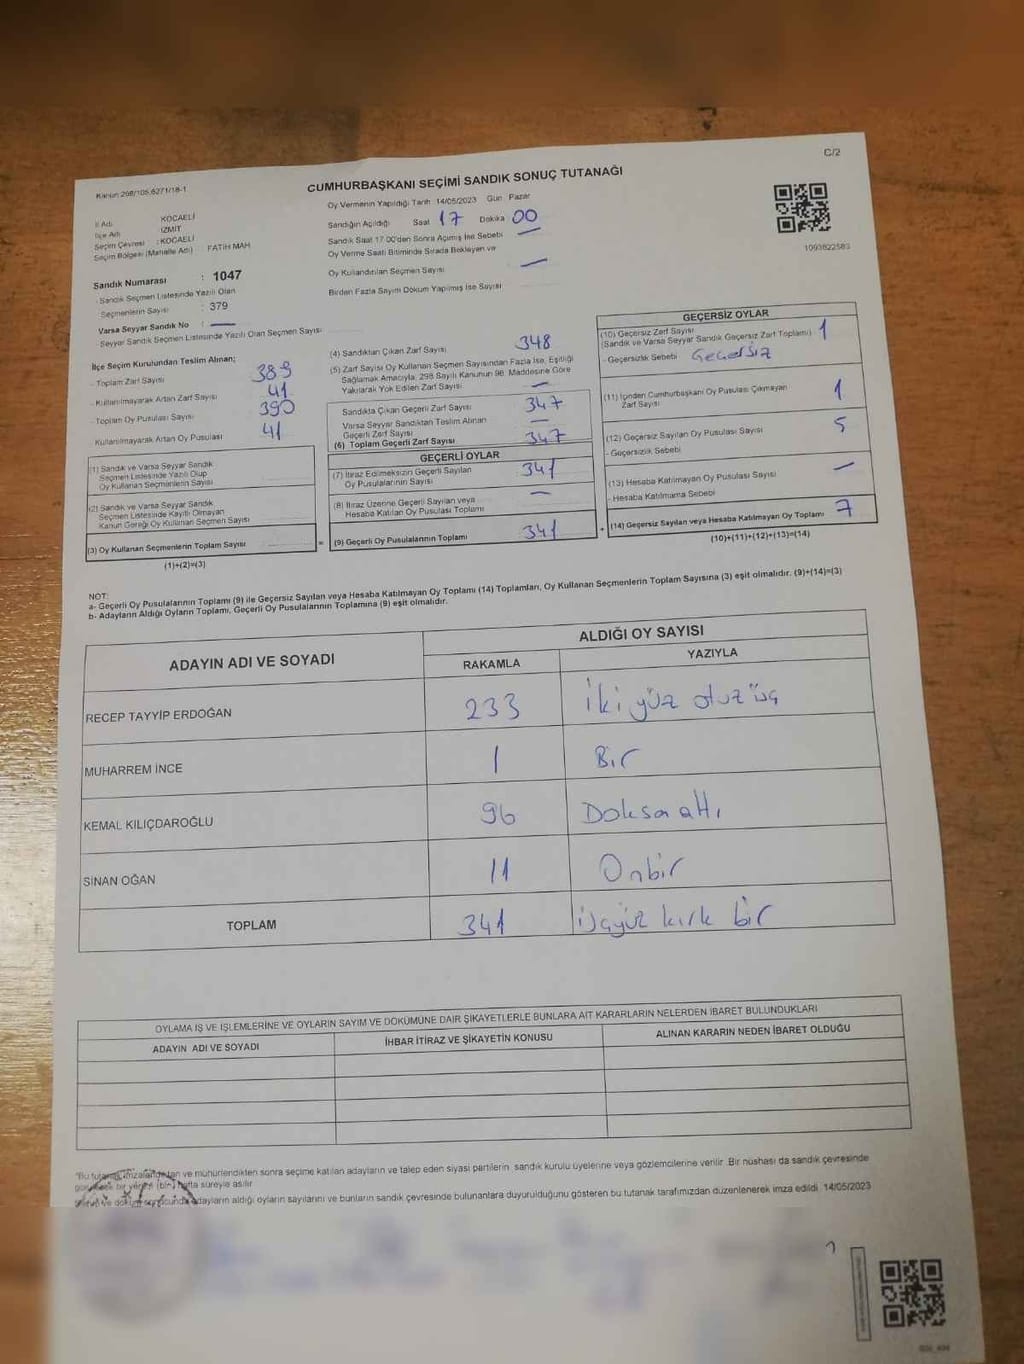 C/2
Kanun 298/105,6271/18-1
CUMHURBAŞKANI SEÇİMİ SANDIK SONUÇ TUTANAĞI
İl Adı KOCAELİ
İlçe Adı İZMİT
Seçim Çevresi : KOCAELİ
Seçim Bölgesi (Mahalle Adı) FATİH MAH
Sandık Numarası : 1047
- Sandık Seçmen Listesinde Yazılı Olan
Seçmenlerin Sayısı : 379
Varsa Seyyar Sandık No : —
Seyyar Sandık Seçmen Listesinde Yazılı Olan Seçmen Sayısı
Oy Vermenin Yapıldığı Tarih 14/05/2023 Gün Pazar
Sandığın Açıldığı Saat 17 Dakika 00
Sandık Saat 17.00'den Sonra Açılmış İse Sebebi —
Oy Verme Saati Bitiminde Sırada Bekleyen ve
Oy Kullandırılan Seçmen Sayısı —
Birden Fazla Sayım Döküm Yapılmış İse Sayısı
1093822583
İlçe Seçim Kurulundan Teslim Alınan;
- Toplam Zarf Sayısı 389
- Kullanılmayarak Artan Zarf Sayısı 41
- Toplam Oy Pusulası Sayısı 390
Kullanılmayarak Artan Oy Pusulası 41
(1) Sandık ve Varsa Seyyar Sandık
Seçmen Listesinde Yazılı Olup
Oy Kullanan Seçmenlerin Sayısı
(2) Sandık ve Varsa Seyyar Sandık
Seçmen Listesinde Kayıtlı Olmayan
Kanun Gereği Oy Kullanan Seçmen Sayısı
(3) Oy Kullanan Seçmenlerin Toplam Sayısı =
(1)+(2)=(3)
(4) Sandıktan Çıkan Zarf Sayısı 348
(5) Zarf Sayısı Oy Kullanan Seçmen Sayısından Fazla İse, Eşitliği
Sağlamak Amacıyla, 298 Sayılı Kanunun 98. Maddesine Göre
Yakılarak Yok Edilen Zarf Sayısı —
Sandıkta Çıkan Geçerli Zarf Sayısı 347
Varsa Seyyar Sandıktan Teslim Alınan
Geçerli Zarf Sayısı —
(6) Toplam Geçerli Zarf Sayısı 347
GEÇERLİ OYLAR
(7) İtiraz Edilmeksizin Geçerli Sayılan
Oy Pusulalarının Sayısı 341
(8) İtiraz Üzerine Geçerli Sayılan veya
Hesaba Katılan Oy Pusulası Toplamı —
(9) Geçerli Oy Pusulalarının Toplamı 341 +
GEÇERSİZ OYLAR
(10) Geçersiz Zarf Sayısı
(Sandık ve Varsa Seyyar Sandık Geçersiz Zarf Toplamı) 1
- Geçersizlik Sebebi Geçersiz
(11) İçinden Cumhurbaşkanı Oy Pusulası Çıkmayan
Zarf Sayısı 1
(12) Geçersiz Sayılan Oy Pusulası Sayısı 5
- Geçersizlik Sebebi
(13) Hesaba Katılmayan Oy Pusulası Sayısı —
- Hesaba Katılmama Sebebi
(14) Geçersiz Sayılan veya Hesaba Katılmayan Oy Toplamı 7
(10)+(11)+(12)+(13)=(14)
NOT:
a- Geçerli Oy Pusulalarının Toplamı (9) ile Geçersiz Sayılan veya Hesaba Katılmayan Oy Toplamı (14) Toplamları, Oy Kullanan Seçmenlerin Toplam Sayısına (3) eşit olmalıdır. (9)+(14)=(3)
b- Adayların Aldığı Oyların Toplamı, Geçerli Oy Pusulalarının Toplamına (9) eşit olmalıdır.
ADAYIN ADI VE SOYADI ALDIĞI OY SAYISI
RAKAMLA YAZIYLA
RECEP TAYYİP ERDOĞAN 233 İki yüz otuz üç
MUHARREM İNCE 1 Bir
KEMAL KILIÇDAROĞLU 96 Doksa altı
SİNAN OĞAN 11 Onbir
TOPLAM 341 üçyüz kırk bir
OYLAMA İŞ VE İŞLEMLERİNE VE OYLARIN SAYIM VE DÖKÜMÜNE DAİR ŞİKAYETLERLE BUNLARA AİT KARARLARIN NELERDEN İBARET BULUNDUKLARI
ADAYIN ADI VE SOYADI İHBAR İTİRAZ VE ŞİKAYETİN KONUSU ALINAN KARARIN NEDEN İBARET OLDUĞU
"Bu tutanak imzalandıktan ve mühürlendikten sonra seçime katılan adayların ve talep eden siyasi partilerin sandık kurulu üyelerine veya gözlemcilerine verilir. Bir nüshası da sandık çevresinde
bir yere (bir) hafta süreyle asılır
ve döküm sonucunda adayların aldığı oyların sayılarını ve bunların sandık çevresinde bulunanlara duyurulduğunu gösteren bu tutanak tarafımızdan düzenlenerek imza edildi. 14/05/2023